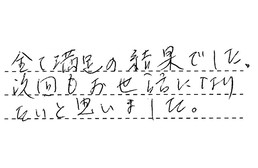 全て満足の結果でした。
次回もお世話になり
たいと思いました。